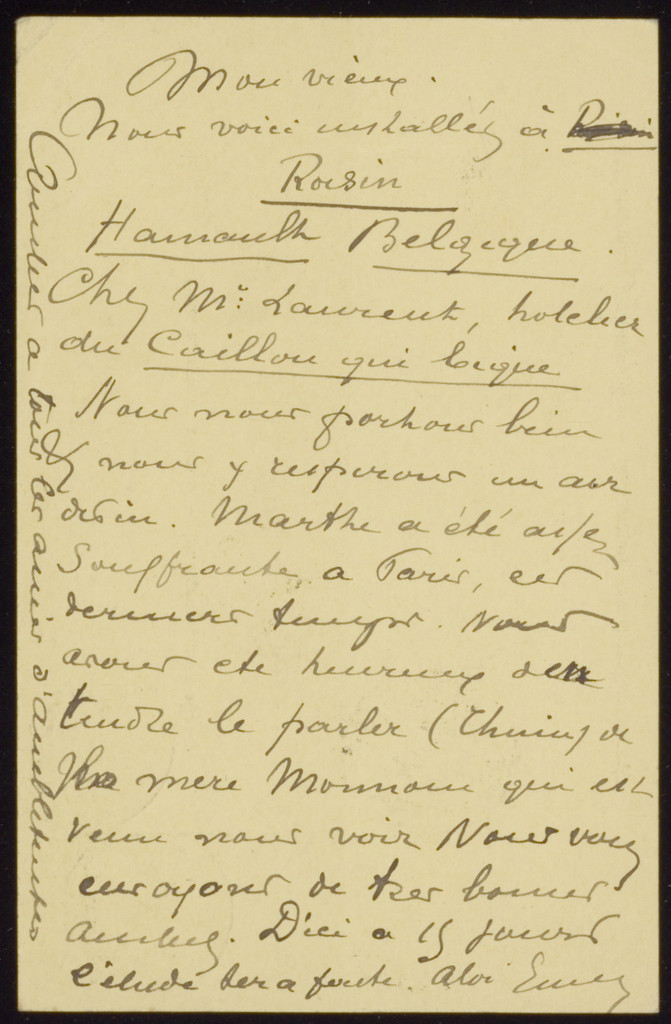 Mon vieux.
Nous voici installés à
Roisin
Hainault Belgique.
Chez Mr: Laurent, hotelier
du Caillou qui bique
Nous nous portons bien
& nous y respirons un air
divin. Marthe a été assez
Souffrante a Paris, ces
derniers temps. Nous
avons été heureux d'en
tendre le parler (Thuin) de
la mere Monnom qui est
venu nous voir Nous vous
envoyons de tres bonnes
amities. D'ici a 15 jours
l'étude sera faite. Alors
Amities a tous les amies d'Ambleteuses